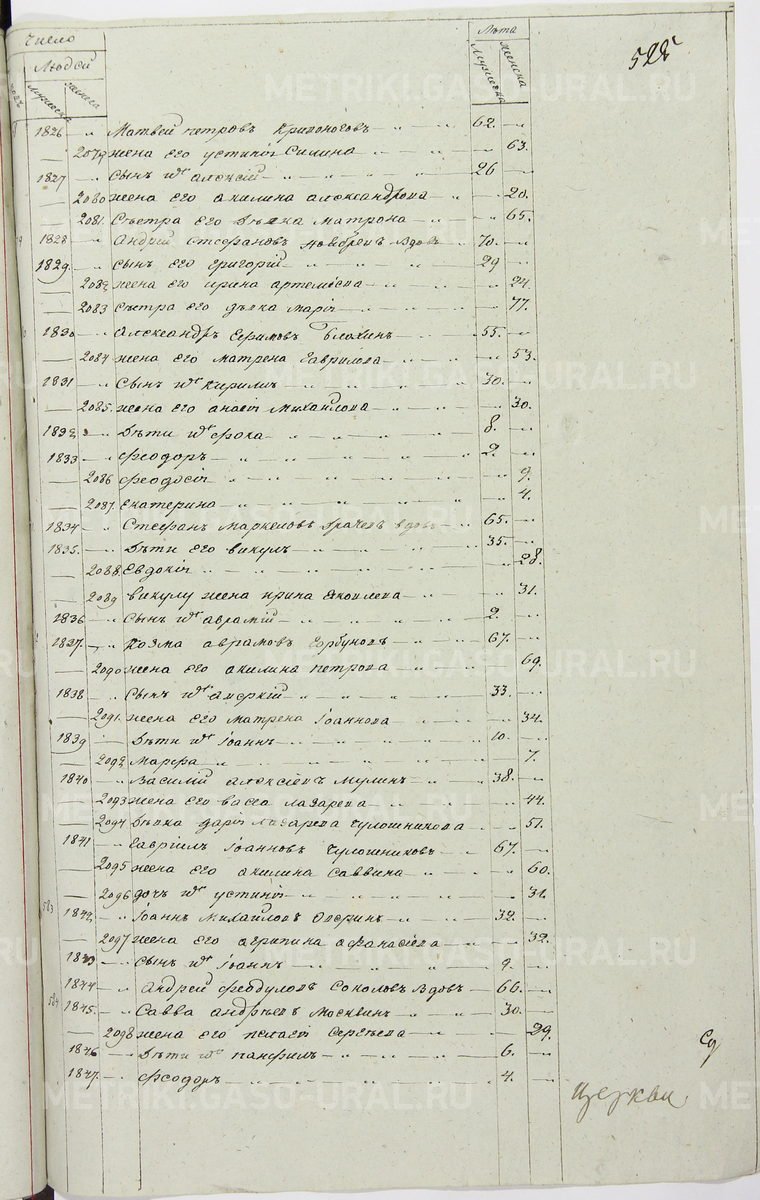 Число Лѣта
Людей 525
мужеска женска мужеска женска
1826 Матвей петровъ Кривоноговъ 62.
2079 жена его устинiя Силина 63.
1827 Сынъ их Алексiй 26
2080 жена его акилина александрова 20.
2081. Сѣстра его дѣвка матрона 65.
1828 Андрей стефановъ вдовъ 70.
1829. Сынъ его григорiй 29
2082 жена его ирина артемiева 24.
2083 Сѣстра его дѣвка марiя 77.
1830 Александръ Ефимовъ блохинъ 55.
2084 жена его матрена гаврилова 53.
1831 Сынъ их кирилъ 30.
2085. жена его анастасiя михайлова 30.
1832 Дѣти их фока 8.
1833 феодоръ 2.
2086 феодосiя 9.
2087. екатерина 4.
1834 Стефанъ маркеловъ грачевъ вдовъ 65.
1835. Дѣти его викулъ 35.
2088. Евдокiя 28.
2089 викулу жена ирина Яковлева 31.
1836 Сынъ их аврамiй 2.
1837. Козма аврамовъ горбуновъ 67.
2090 жена его акилина петрова 69.
1838 Сынъ их аверкiй 33.
2091. жена его матрена iоаннова 34.
1839 Дѣти их iоаннъ 10.
2092 марфа 7.
1840 Василий алексiевъ мулинъ 38.
2093 жена его васса лазарева 44.
2094 Дѣвка дарiя лазарева чулошникова 51.
1841 гаврiилъ iоанновъ чулошниковъ 67.
2095 жена его акилина саввина 60.
2096 дочь их устинiя 31.
583 1842 iоаннъ михайловъ 32.
2097 жена его агрипина афанасiева 32.
1843 Сынъ их iоаннъ 9.
1844 Андрей феодуловъ соколовъ вдовъ 66.
584 1845. Савва андрѣевъ москвинъ 30.
2098 жена его пелагiя Сергѣева 29.
1846 Дѣти их панфилъ 6.
1847. феодоръ 4.
Церкви
METRIKI.GASO-URAL.RU
METRIKI.GASO-URAL.RU
METRIKI.GASO-URAL.RU
METRIKI.GASO-URAL.RU
METRIKI.GASO-URAL.RU
METRIKI.GASO-URAL.RU